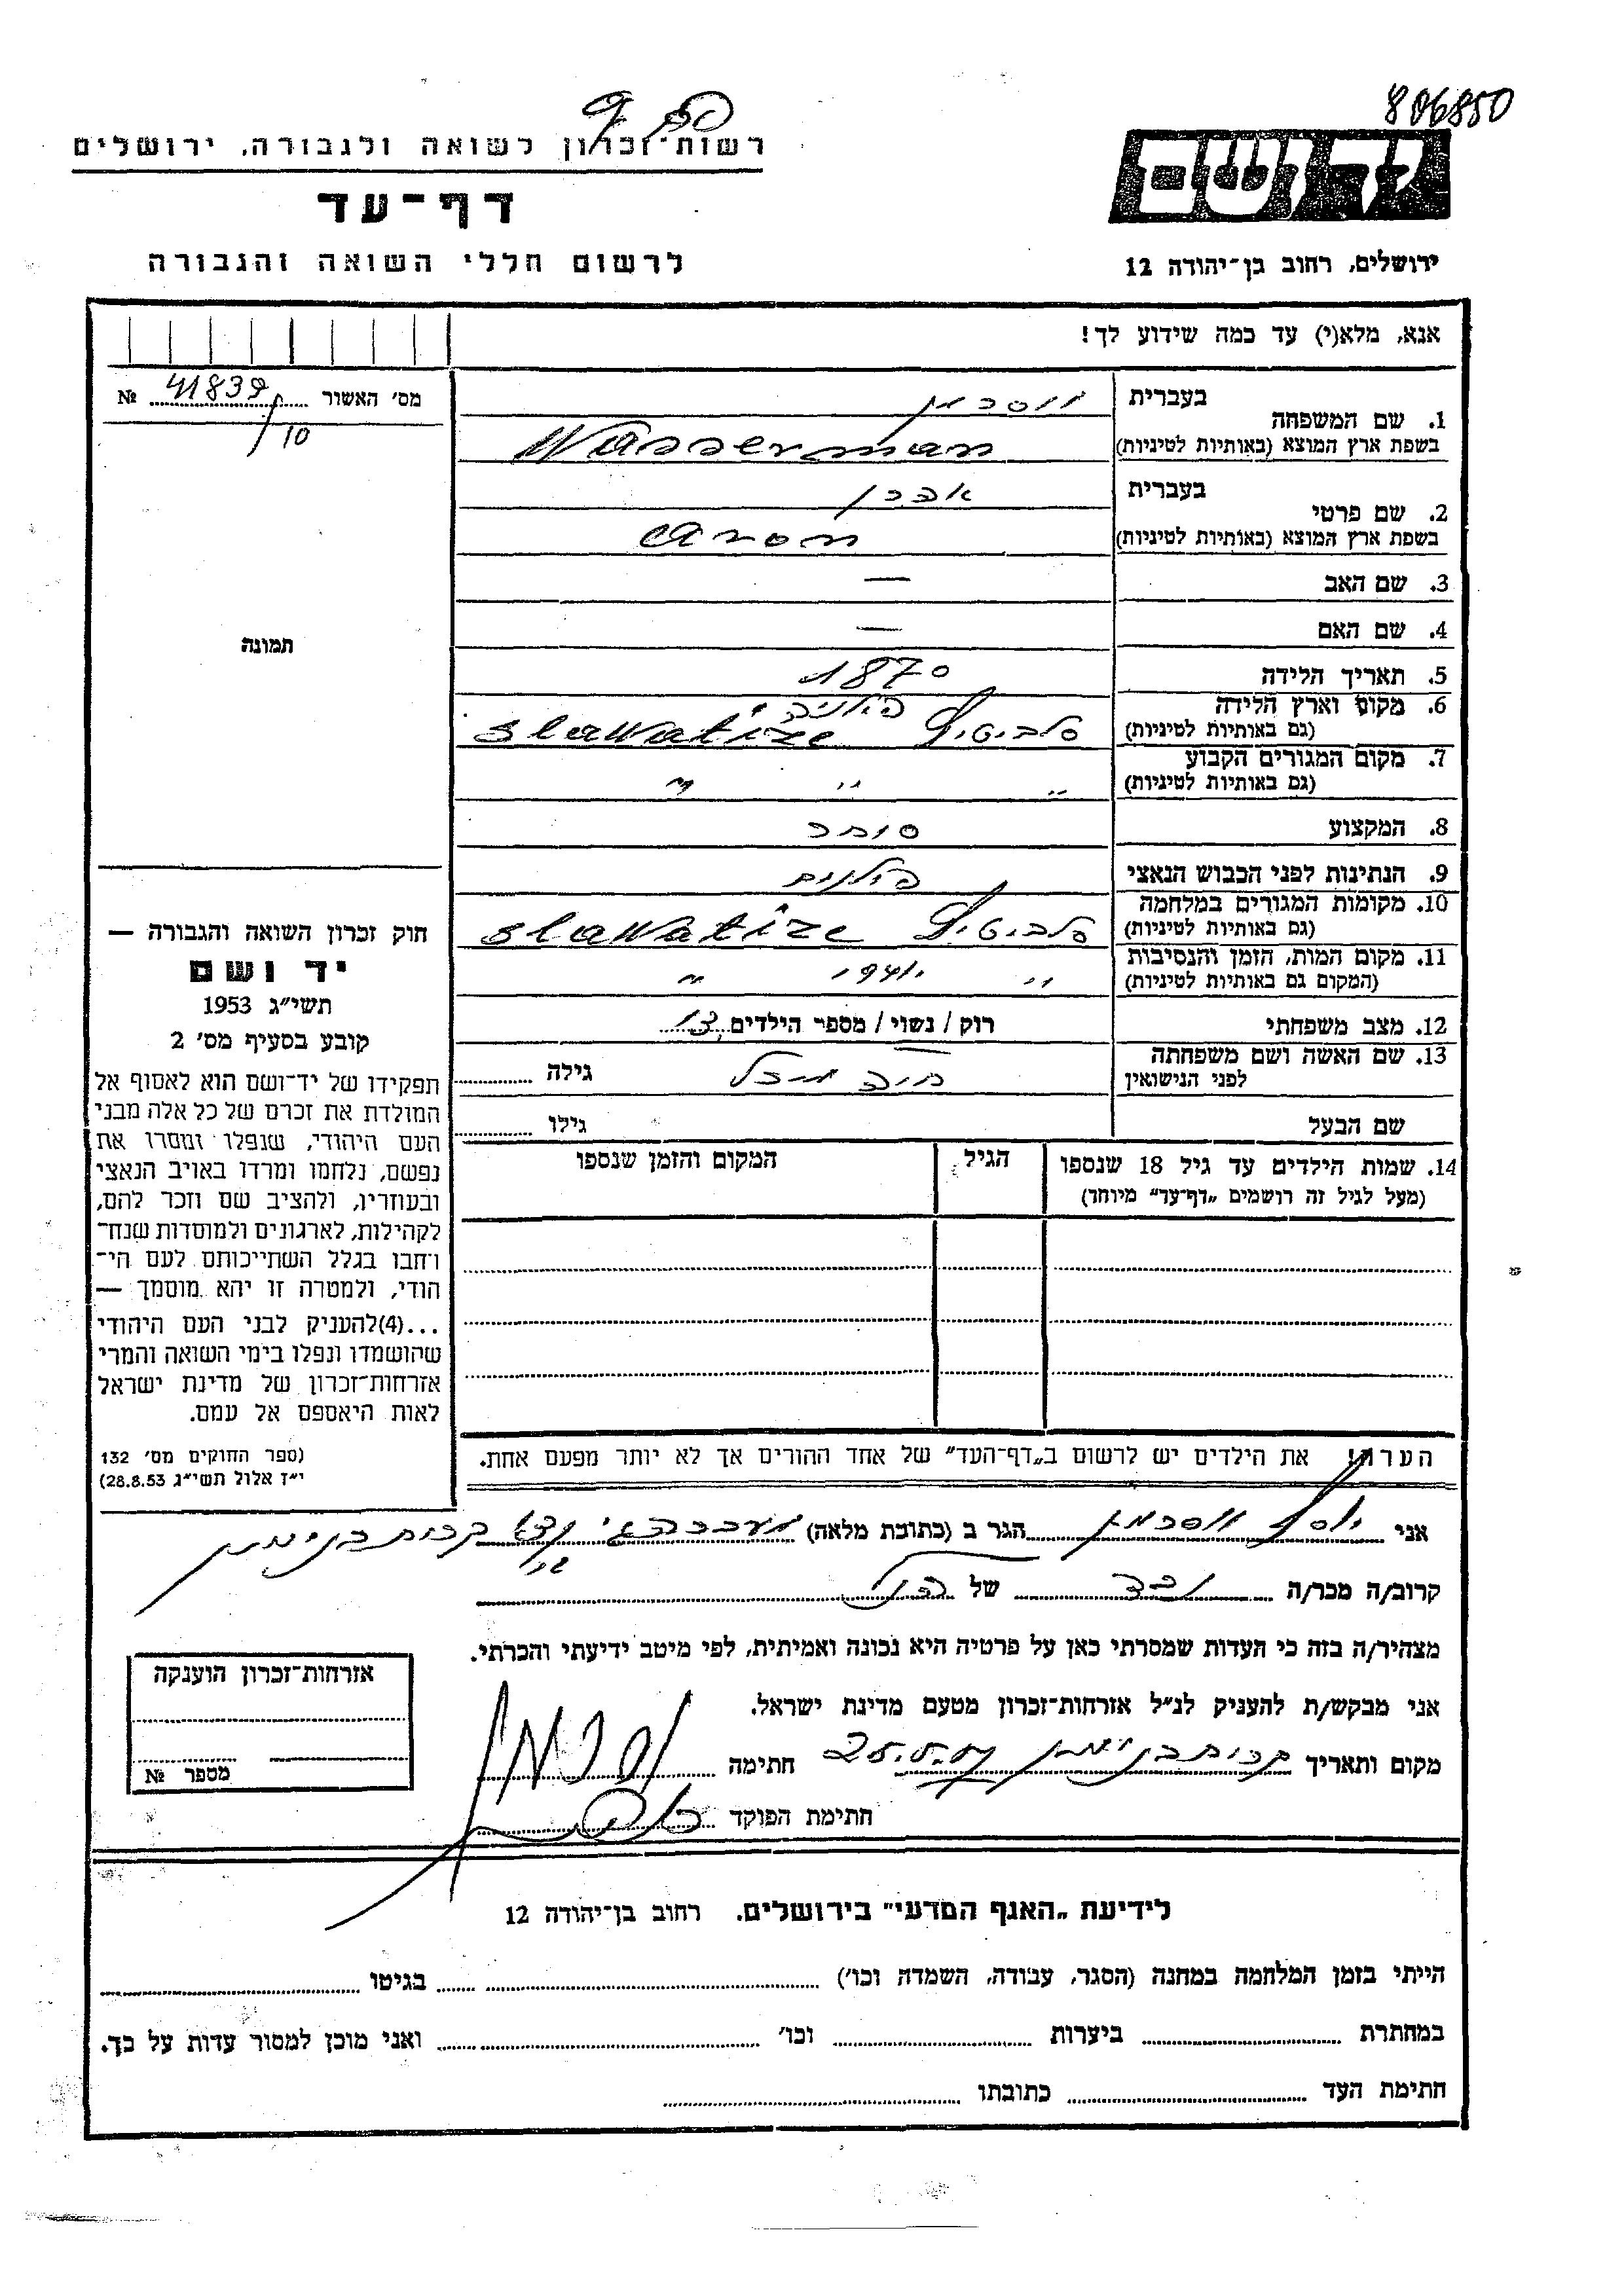 806850
רשות־זכרון לשואה ולגבורה, ירושלים
דף־עד
לרשום חללי השואה והגבורה
יד ושם
ירושלים, רחוב בן־יהודה 12
אנא, מלא(י) עד כמה שידוע לך!
מס׳ האשור 41839 №
/10
תמונה
1. שם המשפחה
בעברית וסרמן
בשפת ארץ המוצא (באותיות לטיניות) Wasserman
2. שם פרטי
בעברית אהרן
בשפת ארץ המוצא (באותיות לטיניות) aron
3. שם האב —
4. שם האם —
5. תאריך הלידה 1870
6. מקום וארץ הלידה פולניה
(גם באותיות לטיניות) Slawatize
7. מקום המגורים הקבוע
(גם באותיות לטיניות) " " "
8. המקצוע סוחר
9. הנתינות לפני הכבוש הנאצי
10. מקומות המגורים במלחמה
(גם באותיות לטיניות) Slawatize
11. מקום המות, הזמן והנסיבות
(המקום גם באותיות לטיניות) " 1941 "
12. מצב משפחתי רוק / נשוי / מספר הילדים 13
13. שם האשה ושם משפחתה
לפני הנישואין גילה
שם הבעל גילו
14. שמות הילדים עד גיל 18 שנספו הגיל המקום והזמן שנספו
(מעל לגיל זה רושמים „דף־עד״ מיוחד)
הערה! את הילדים יש לרשום ב„דף־העד״ של אחד ההורים אך לא יותר מפעם אחת.
חוק זכרון השואה והגבורה —
יד ושם
תשי״ג 1953
קובע בסעיף מס׳ 2
תפקידו של יד־ושם הוא לאסוף אל
המולדת את זכרם של כל אלה מבני
העם היהודי, שנפלו ומסרו את
נפשם, נלחמו ומרדו באויב הנאצי
ובעוזריו, ולהציב שם וזכר להם,
לקהילות, לארגונים ולמוסדות שנח־
רבו בגלל השתייכותם לעם הי־
הודי, ולמטרה זו יהא מוסמך —
...(4)להעניק לבני העם היהודי
שהושמדו ונפלו בימי השואה והמרי
אזרחות־זכרון של מדינת ישראל
לאות היאספם אל עמם.
(ספר החוקים מס׳ 132
י״ז אלול תשי״ג 28.8.53)
אני יוסף וסרמן הגר ב (כתובת מלאה)
קרוב/ה מכר/ה של
מצהיר/ה בזה כי העדות שמסרתי כאן על פרטיה היא נכונה ואמיתית, לפי מיטב ידיעתי והכרתי.
אני מבקש/ת להעניק לנ״ל אזרחות־זכרון מטעם מדינת ישראל.
מקום ותאריך חתימה
חתימת הפוקד
אזרחות־זכרון הוענקה
מספר №
לידיעת „האגף המדעי״ בירושלים. רחוב בן־יהודה 12
הייתי בזמן המלחמה במחנה (הסגר, עבודה, השמדה וכו׳) בגיטו
במחתרת ביערות וכו׳ ואני מוכן למסור עדות על כך.
חתימת העד כתובתו